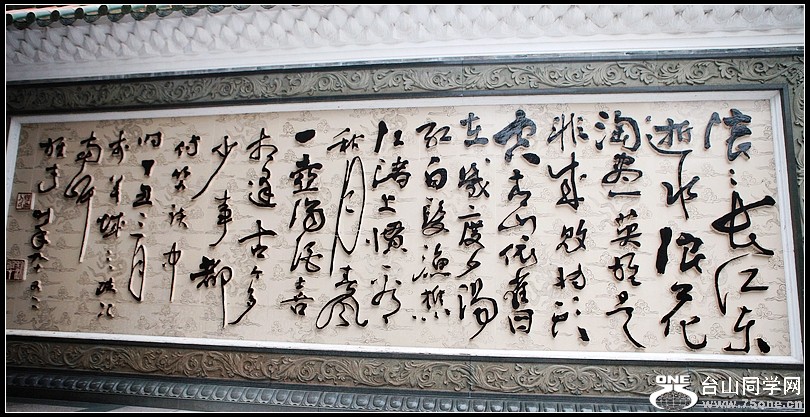 滚滚长江东
逝水浪花
淘尽英雄是
非成败转头
空青山依旧
在几度夕阳
红白发渔樵
江渚上惯看
秋月春风
一壶浊酒喜
相逢古今多
少事都
付笑谈中
时丁丑三月
ONE 台山同学网
www.75one.cn